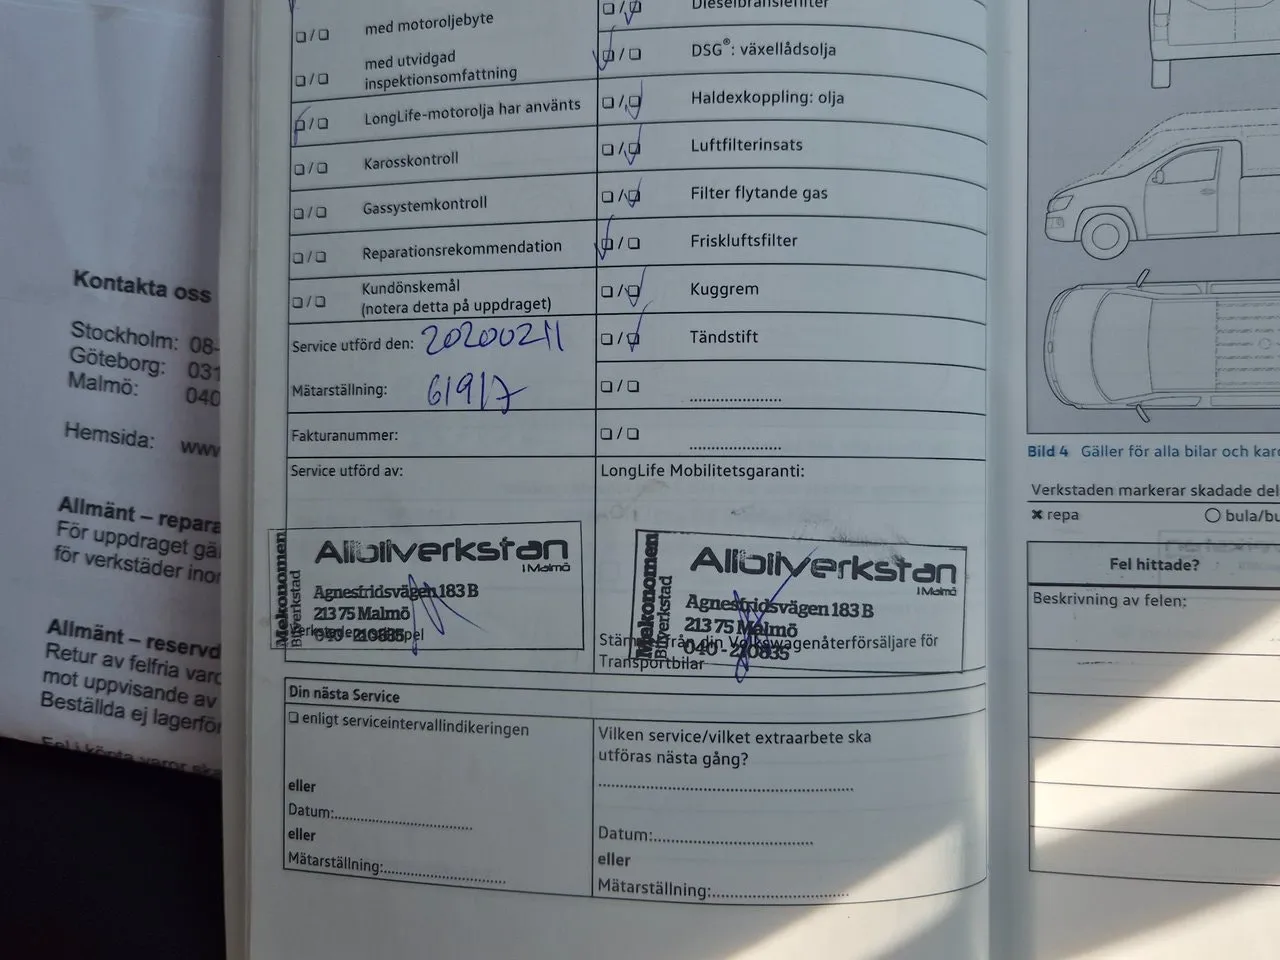 Kontakta oss
Stockholm: 08-
Göteborg: 031
Malmö: 040
Hemsida: www
Allmänt – repara
För uppdraget gä
för verkstäder inor
Allmänt – reservd
Retur av felfria varo
mot uppvisande av
Beställda ej lagerför
☐ / ☐ med motoroljebyte
☐ / ☐ med utvidgad
inspektionsomfattning
☐ / ☐ LongLife-motorolja har använts
☐ / ☐ Karosskontroll
☐ / ☐ Gassystemkontroll
☐ / ☐ Reparationsrekommendation
☐ / ☐ Kundönskemål
(notera detta på uppdraget)
Service utförd den: 20200211
Mätarställning: 61917
Fakturanummer:
Service utförd av:
Mekonomen
Bilverkstad
Allbilverkstan
i Malmö
Agnesfridsvägen 183 B
213 75 Malmö
040 - 210835
☐ / ☐ Dieselbränslefilter
☐ / ☐ DSG®: växellådsolja
☐ / ☐ Haldexkoppling: olja
☐ / ☐ Luftfilterinsats
☐ / ☐ Filter flytande gas
☐ / ☐ Friskluftsfilter
☐ / ☐ Kuggrem
☐ / ☐ Tändstift
☐ / ☐ ......................
☐ / ☐ ......................
LongLife Mobilitetsgaranti:
Mekonomen
Bilverkstad
Allbilverkstan
i Malmö
Agnesfridsvägen 183 B
213 75 Malmö
040 - 210835
från din Volkswagenåterförsäljare för
Transportbilar
Din nästa Service
☐ enligt serviceintervallindikeringen
eller
Datum:.................................
eller
Mätarställning:.............................
Vilken service/vilket extraarbete ska
utföras nästa gång?
Datum:......................................
eller
Mätarställning:................................
Bild 4 Gäller för alla bilar och karo
Verkstaden markerar skadade del
✖ repa ○ bula/bu
Fel hittade?
Beskrivning av felen: